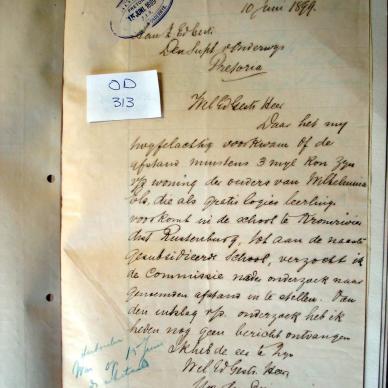 10 Juni 1899.
Aan
Den Supt v Onderwijs
Pretoria
OD
313
Wel Ed Gestr Heer
Daar het my
twyfelachtig voorkwam of de
afstand minstens 3 myl kon zyn
v/d woning der ouders van Wilhelmina
die als gratis logies leerling
voorkomt in de school te Kromrivier
dist Rustenburg, tot aan de naaste
Gesubsidieerde School, verzocht ik
de Commissie nader onderzoek naar
genoemden afstand in te stellen. Van
den uitslag v/d onderzoek heb ik
heden nog geen bericht ontvangen
Ik heb de eer te zyn
Wel Ed Gestr Heer
15 Juni